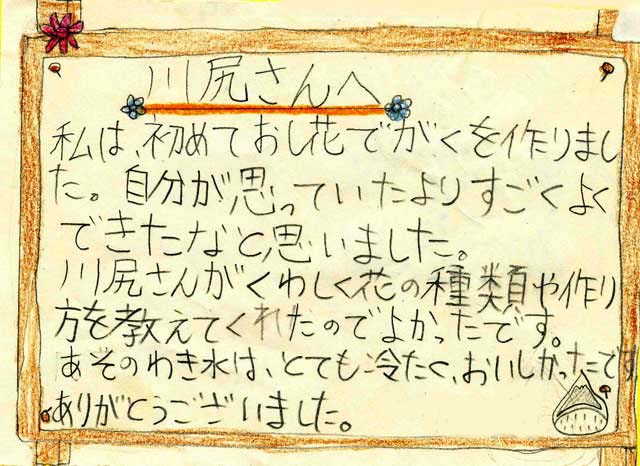 川尻さんへ
私は、初めておし花でがくを作りまし
た。自分が思っていたよりすごくよく
できたなと思いました。
川尻さんがくわしく花の種類や作り
方を教えてくれたのでよかったです。
あそのわき水は、とても冷たく、おいしかったです
ありがとうございました。